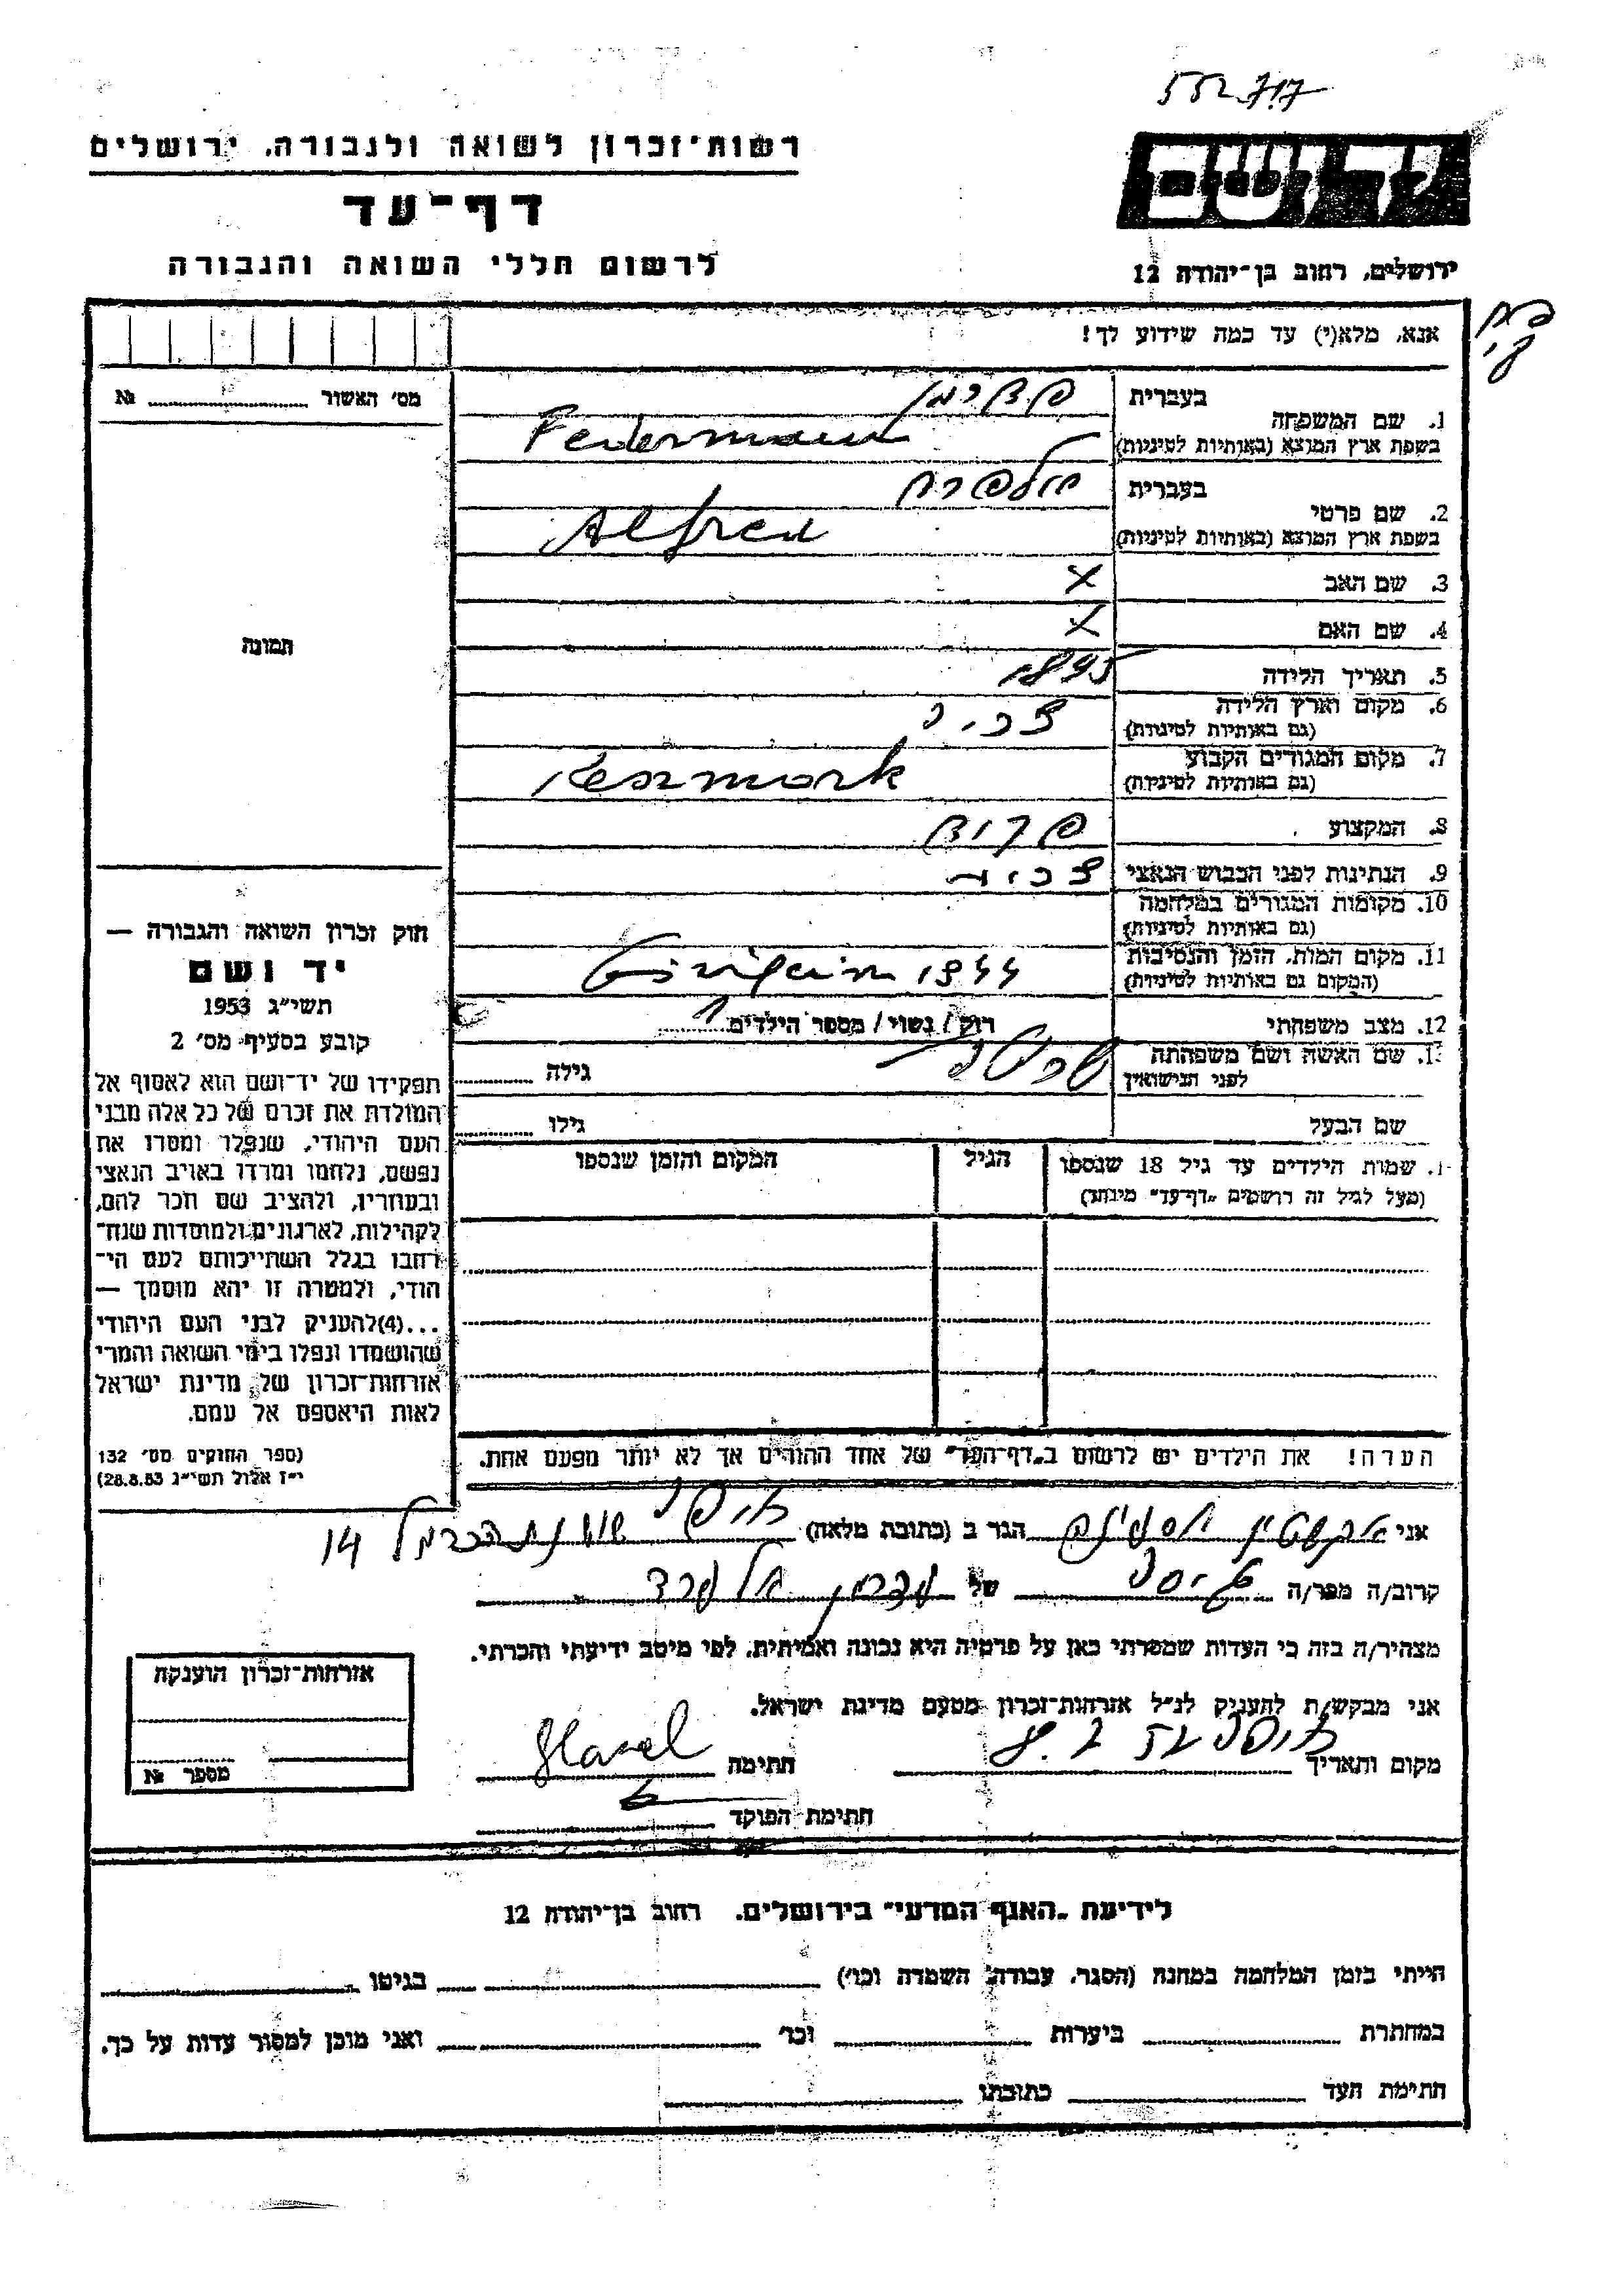 552717
רשות־זכרון לשואה ולגבורה, ירושלים
דף־עד
לרשום חללי השואה והגבורה
יד ושם
ירושלים, רחוב בן־יהודה 12
אנא, מלא(י) עד כמה שידוע לך!
מס׳ האשור № 
תמונה
חוק זכרון השואה והגבורה —
יד ושם
תשי״ג 1953
קובע בסעיף מס׳ 2
תפקידו של יד־ושם הוא לאסוף אל
המולדת את זכרם של כל אלה מבני
העם היהודי, שנפלו ומסרו את
נפשם, נלחמו ומרדו באויב הנאצי
ובעוזריו, ולהציב שם וזכר להם,
לקהילות, לארגונים ולמוסדות שנח־
רבו בגלל השתייכותם לעם הי־
הודי, ולמטרה זו יהא מוסמך —
...(4)להעניק לבני העם היהודי
שהושמדו ונפלו בימי השואה והמרי
אזרחות־זכרון של מדינת ישראל
לאות היאספם אל עמם.
(ספר החוקים מס׳ 132
י״ז אלול תשי״ג 28.8.53)
1. שם המשפחה בעברית
בשפת ארץ המוצא (באותיות לטיניות) Federmann
2. שם פרטי בעברית אלפרד
בשפת ארץ המוצא (באותיות לטיניות) Alfred
3. שם האב X
4. שם האם X
5. תאריך הלידה 1895
6. מקום וארץ הלידה
(גם באותיות לטיניות)
7. מקום המגורים הקבוע
(גם באותיות לטיניות) Kesmark
8. המקצוע פקיד
9. הנתינות לפני הכבוש הנאצי
10. מקומות המגורים במלחמה
(גם באותיות לטיניות)
11. מקום המות, הזמן והנסיבות
(המקום גם באותיות לטיניות) 1944
12. מצב משפחתי רוק / נשוי / מספר הילדים 1
13. שם האשה ושם משפחתה
לפני הנישואין גילה
שם הבעל גילו
שמות הילדים עד גיל 18 שנספו הגיל המקום והזמן שנספו
(מעל לגיל זה רושמים „דף־עד״ מיוחד)
הערה! את הילדים יש לרשום ב„דף־העד״ של אחד ההורים אך לא יותר מפעם אחת.
אני הגר ב (כתובת מלאה) חיפה שושנת הכרמל 14
קרוב/ה מפר/ה של פדרמן אלפרד
מצהיר/ה בזה כי העדות שמסרתי כאן על פרטיה היא נכונה ואמיתית, לפי מיטב ידיעתי והכרתי.
אני מבקש/ת להעניק לנ״ל אזרחות־זכרון מטעם מדינת ישראל.
מקום ותאריך חיפה חתימה
חתימת הפוקד
אזרחות־זכרון הוענקה
מספר №
לידיעת „האגף המדעי״ בירושלים. רחוב בן־יהודה 12
הייתי בזמן המלחמה במחנה (הסגר, עבודה, השמדה וכו׳) בגיטו
במחתרת ביערות וכו׳ ואני מוכן למסור עדות על כך.
חתימת העד כתובתו